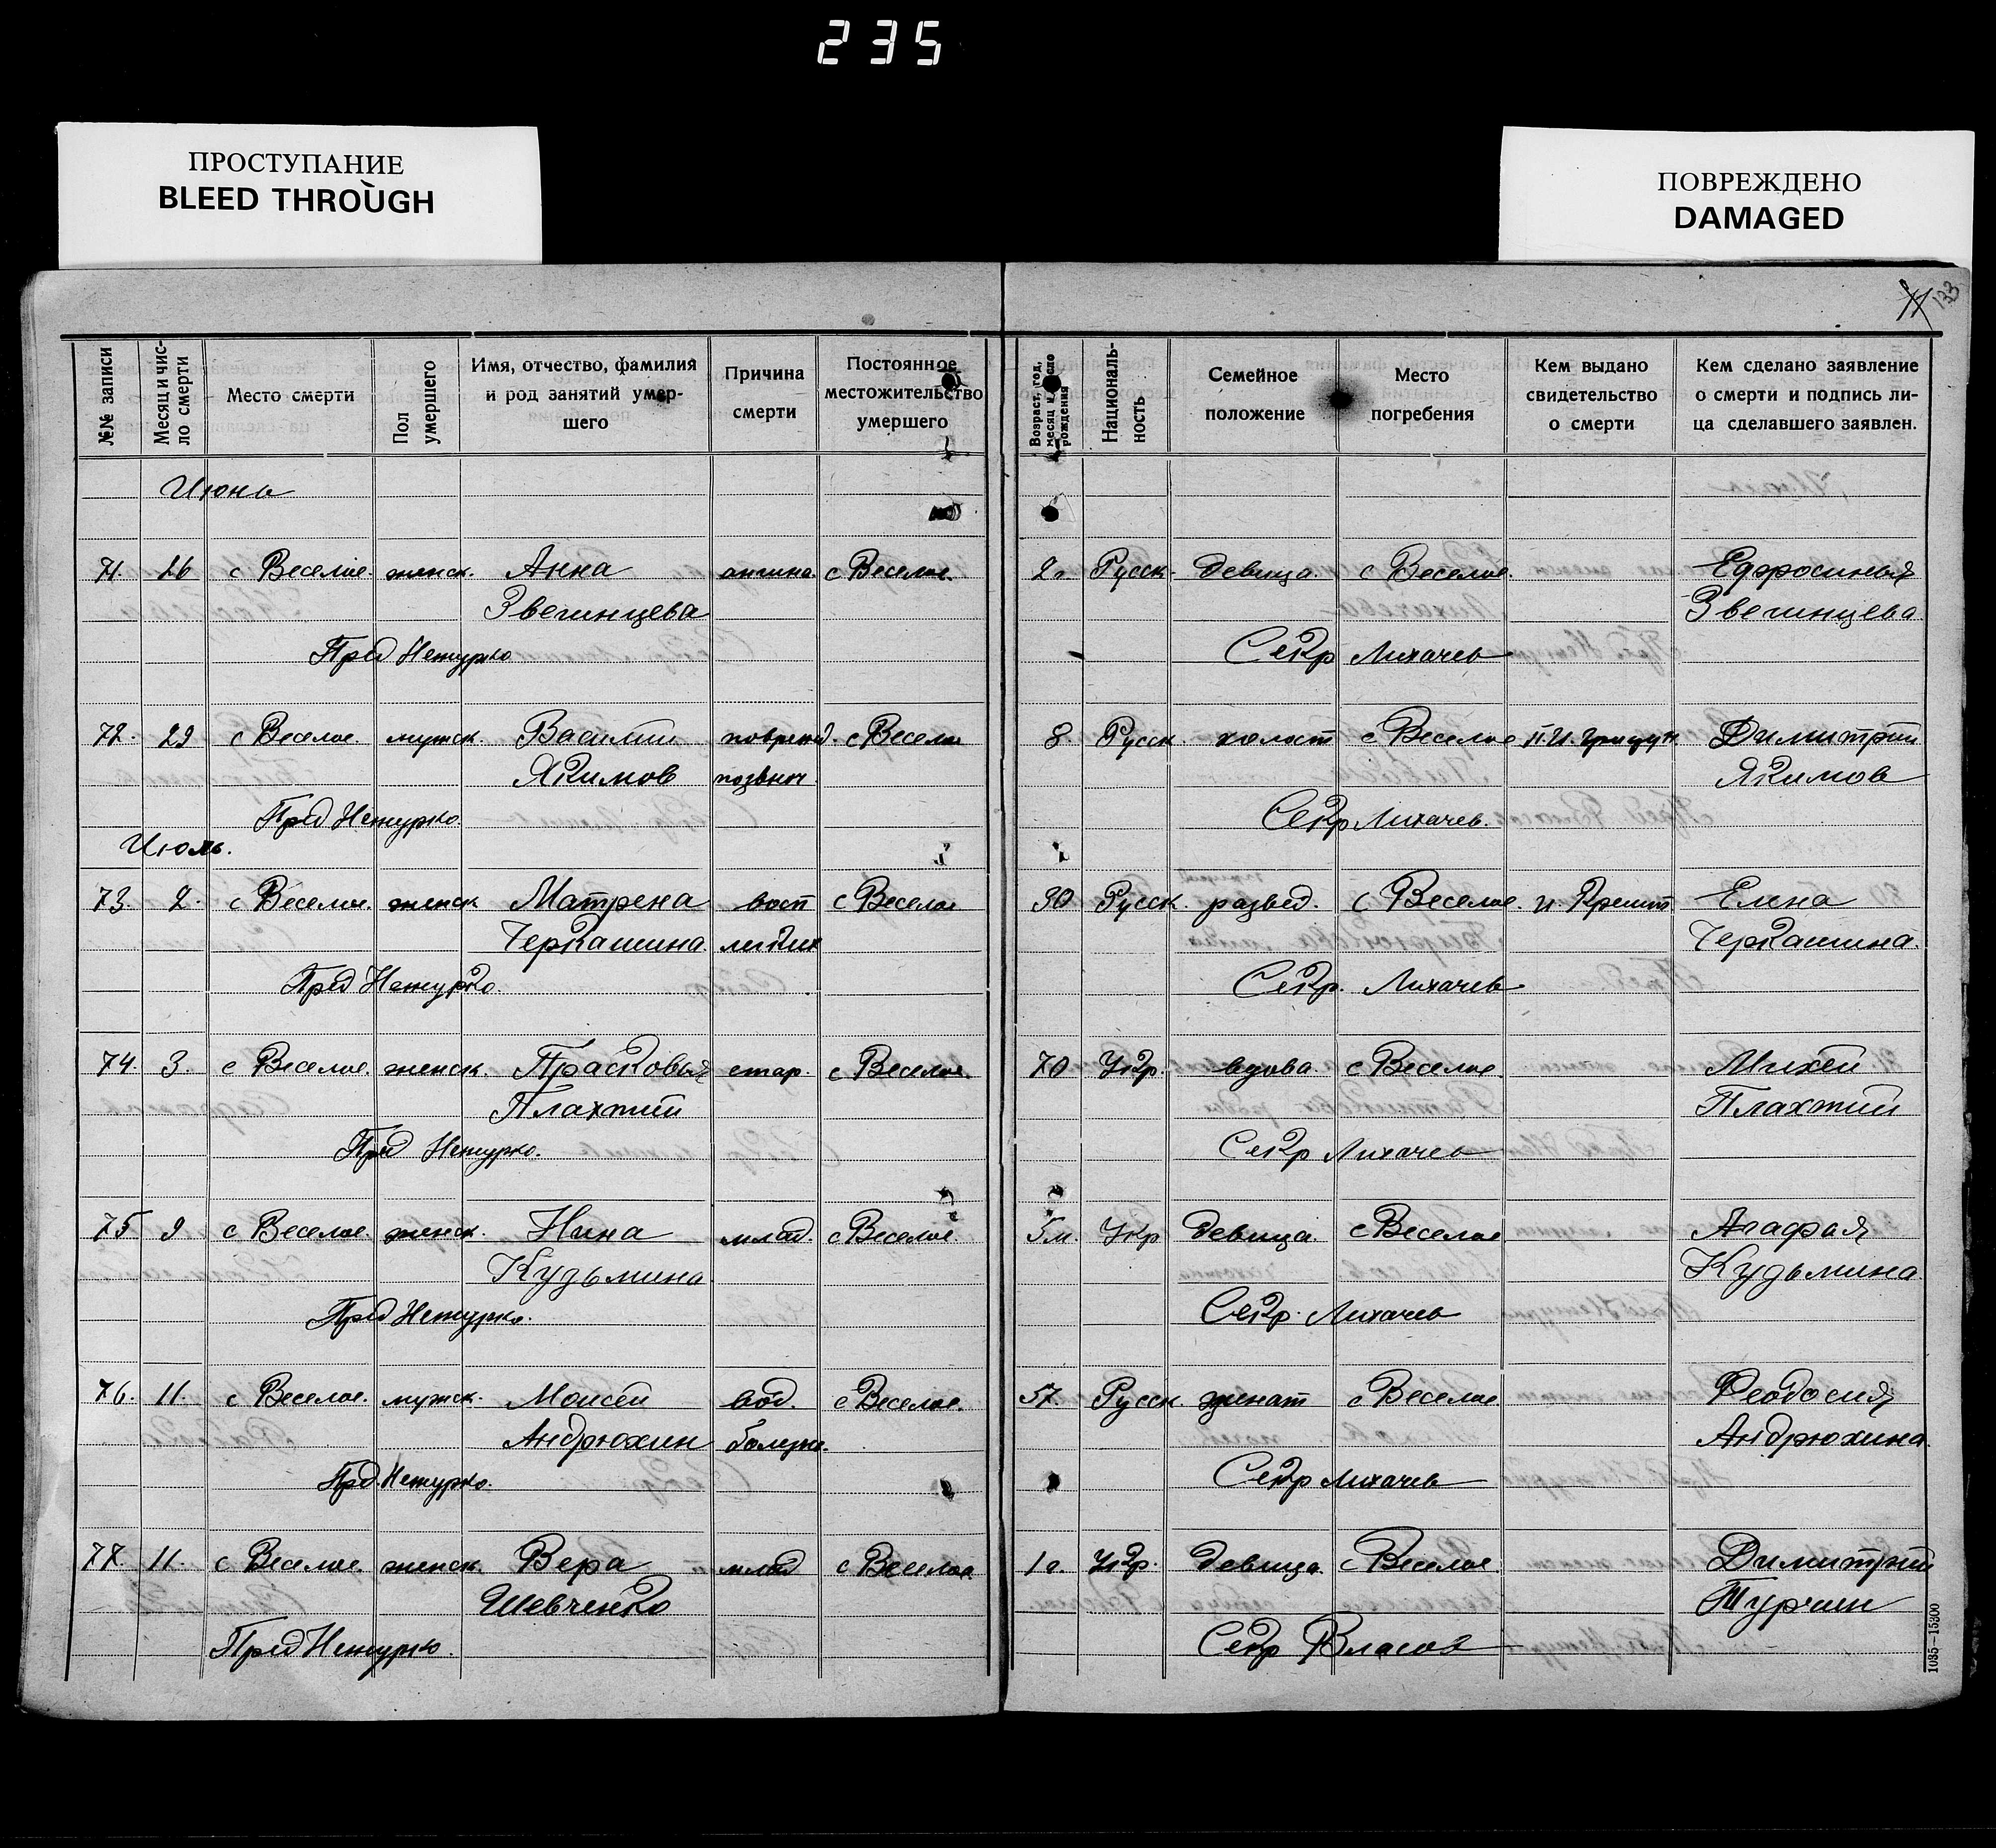 235
ПРОСТУПАНИЕ
BLEED THROUGH
ПОВРЕЖДЕНО
DAMAGED
11 133
№№ записи
Месяц и чис-
ло смерти
Место смерти
Пол
умершего
Имя, отчество, фамилия
и род занятий умер-
шего
Причина
смерти
Постоянное
местожительство
умершего
Возраст, год,
месяц и число
рождения
Националь-
ность
Семейное
положение
Место
погребения
Кем выдано
свидетельство
о смерти
Кем сделано заявление
о смерти и подпись ли-
ца сделавшего заявлен.
Июнь
71. 26 с Веселое. женск. Анна ангина. с Веселое. 2г. Русск. девица. с Веселое. Ефросинья
Звегинцева Звегинцева
Пред Нетурко Секр Лихачев
72. 29 с Веселое. мужск. Василий поврежд. с Веселое 8. Русск холост с Веселое П.И. Грицун. Димитрий
Якимов позвоч. Якимов
Пред Нетурко. Секр Лихачев.
Июль.
73. 2. с Веселое. женск Матрена восп с Веселое 30 Русск. развед. с Веселое. Елена
Черкашина. легких Черкашина.
Пред Нетурко. Секр. Лихачев
74. 3. с Веселое. женск. Прасковья стар. с Веселое. 70 Укр. вдова. с Веселое. Михей
Плахтий Плахтий
Пред Нетурко. Секр Лихачев
75 9 с Веселое. женск. Нина млад. с Веселое. 5м Укр девица. с Веселое Агафья
Кузьмина Кузьмина.
Пред Нетурко. Секр. Лихачев
76. 11. с Веселое. мужск. Моисей вод. с Веселое. 57. Русск женат с Веселое. Феодосия
Андрюхин болезн. Андрюхина.
Пред. Нетурко. Секр Лихачев
77. 11. с Веселое. женск. Вера млад с Веселое. 1г. Укр. девица. с Веселое. Димитрий
Шевченко Турчин
Пред Нетурко. Секр Власов
1035—15300